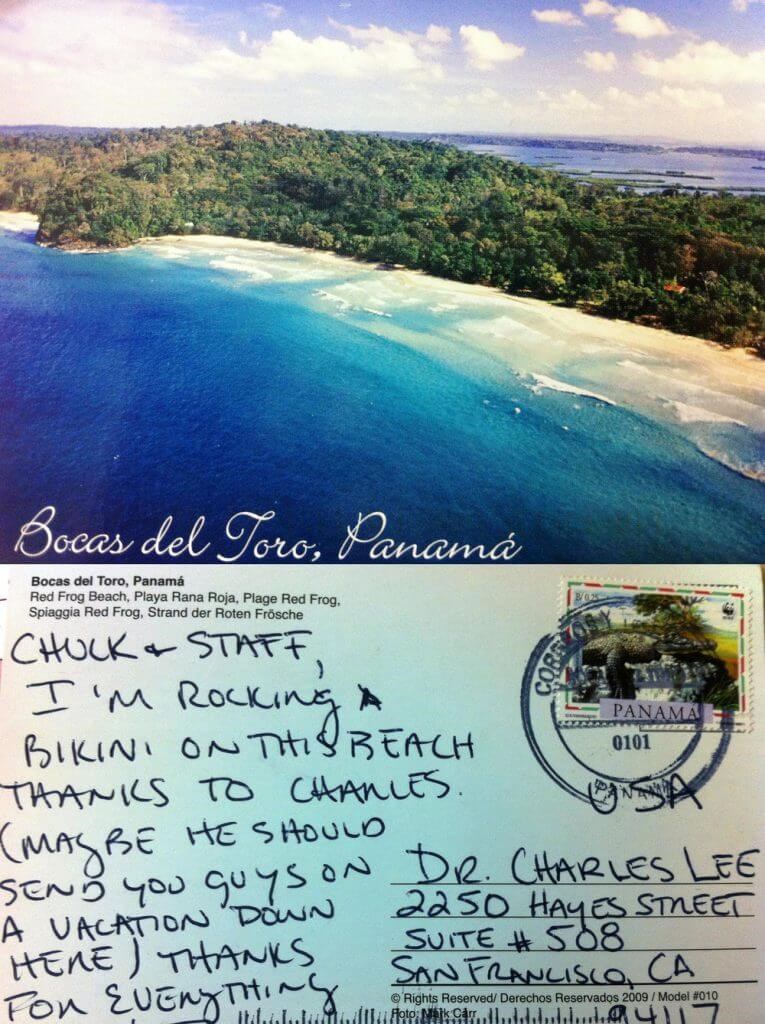 Bocas del Toro, Panamá
Bocas del Toro, Panamá
Red Frog Beach, Playa Rana Roja, Plage Red Frog,
Spiaggia Red Frog, Strand der Roten Frösche
CHUCK & STAFF,
I'M ROCKING A
BIKINI ON THIS BEACH
THANKS TO CHARLES.
(MAYBE HE SHOULD
SEND YOU GUYS ON
A VACATION DOWN
HERE) THANKS
FOR EVERYTHING
B/ 0.25
WWF
PANAMÁ
0101
PANAMA
USA
DR. CHARLES LEE
2250 HAYES STREET
SUITE # 508
SAN FRANCISCO, CA
94117
© Rights Reserved/ Derechos Reservados 2009 / Model #010
Foto: Mark Carr